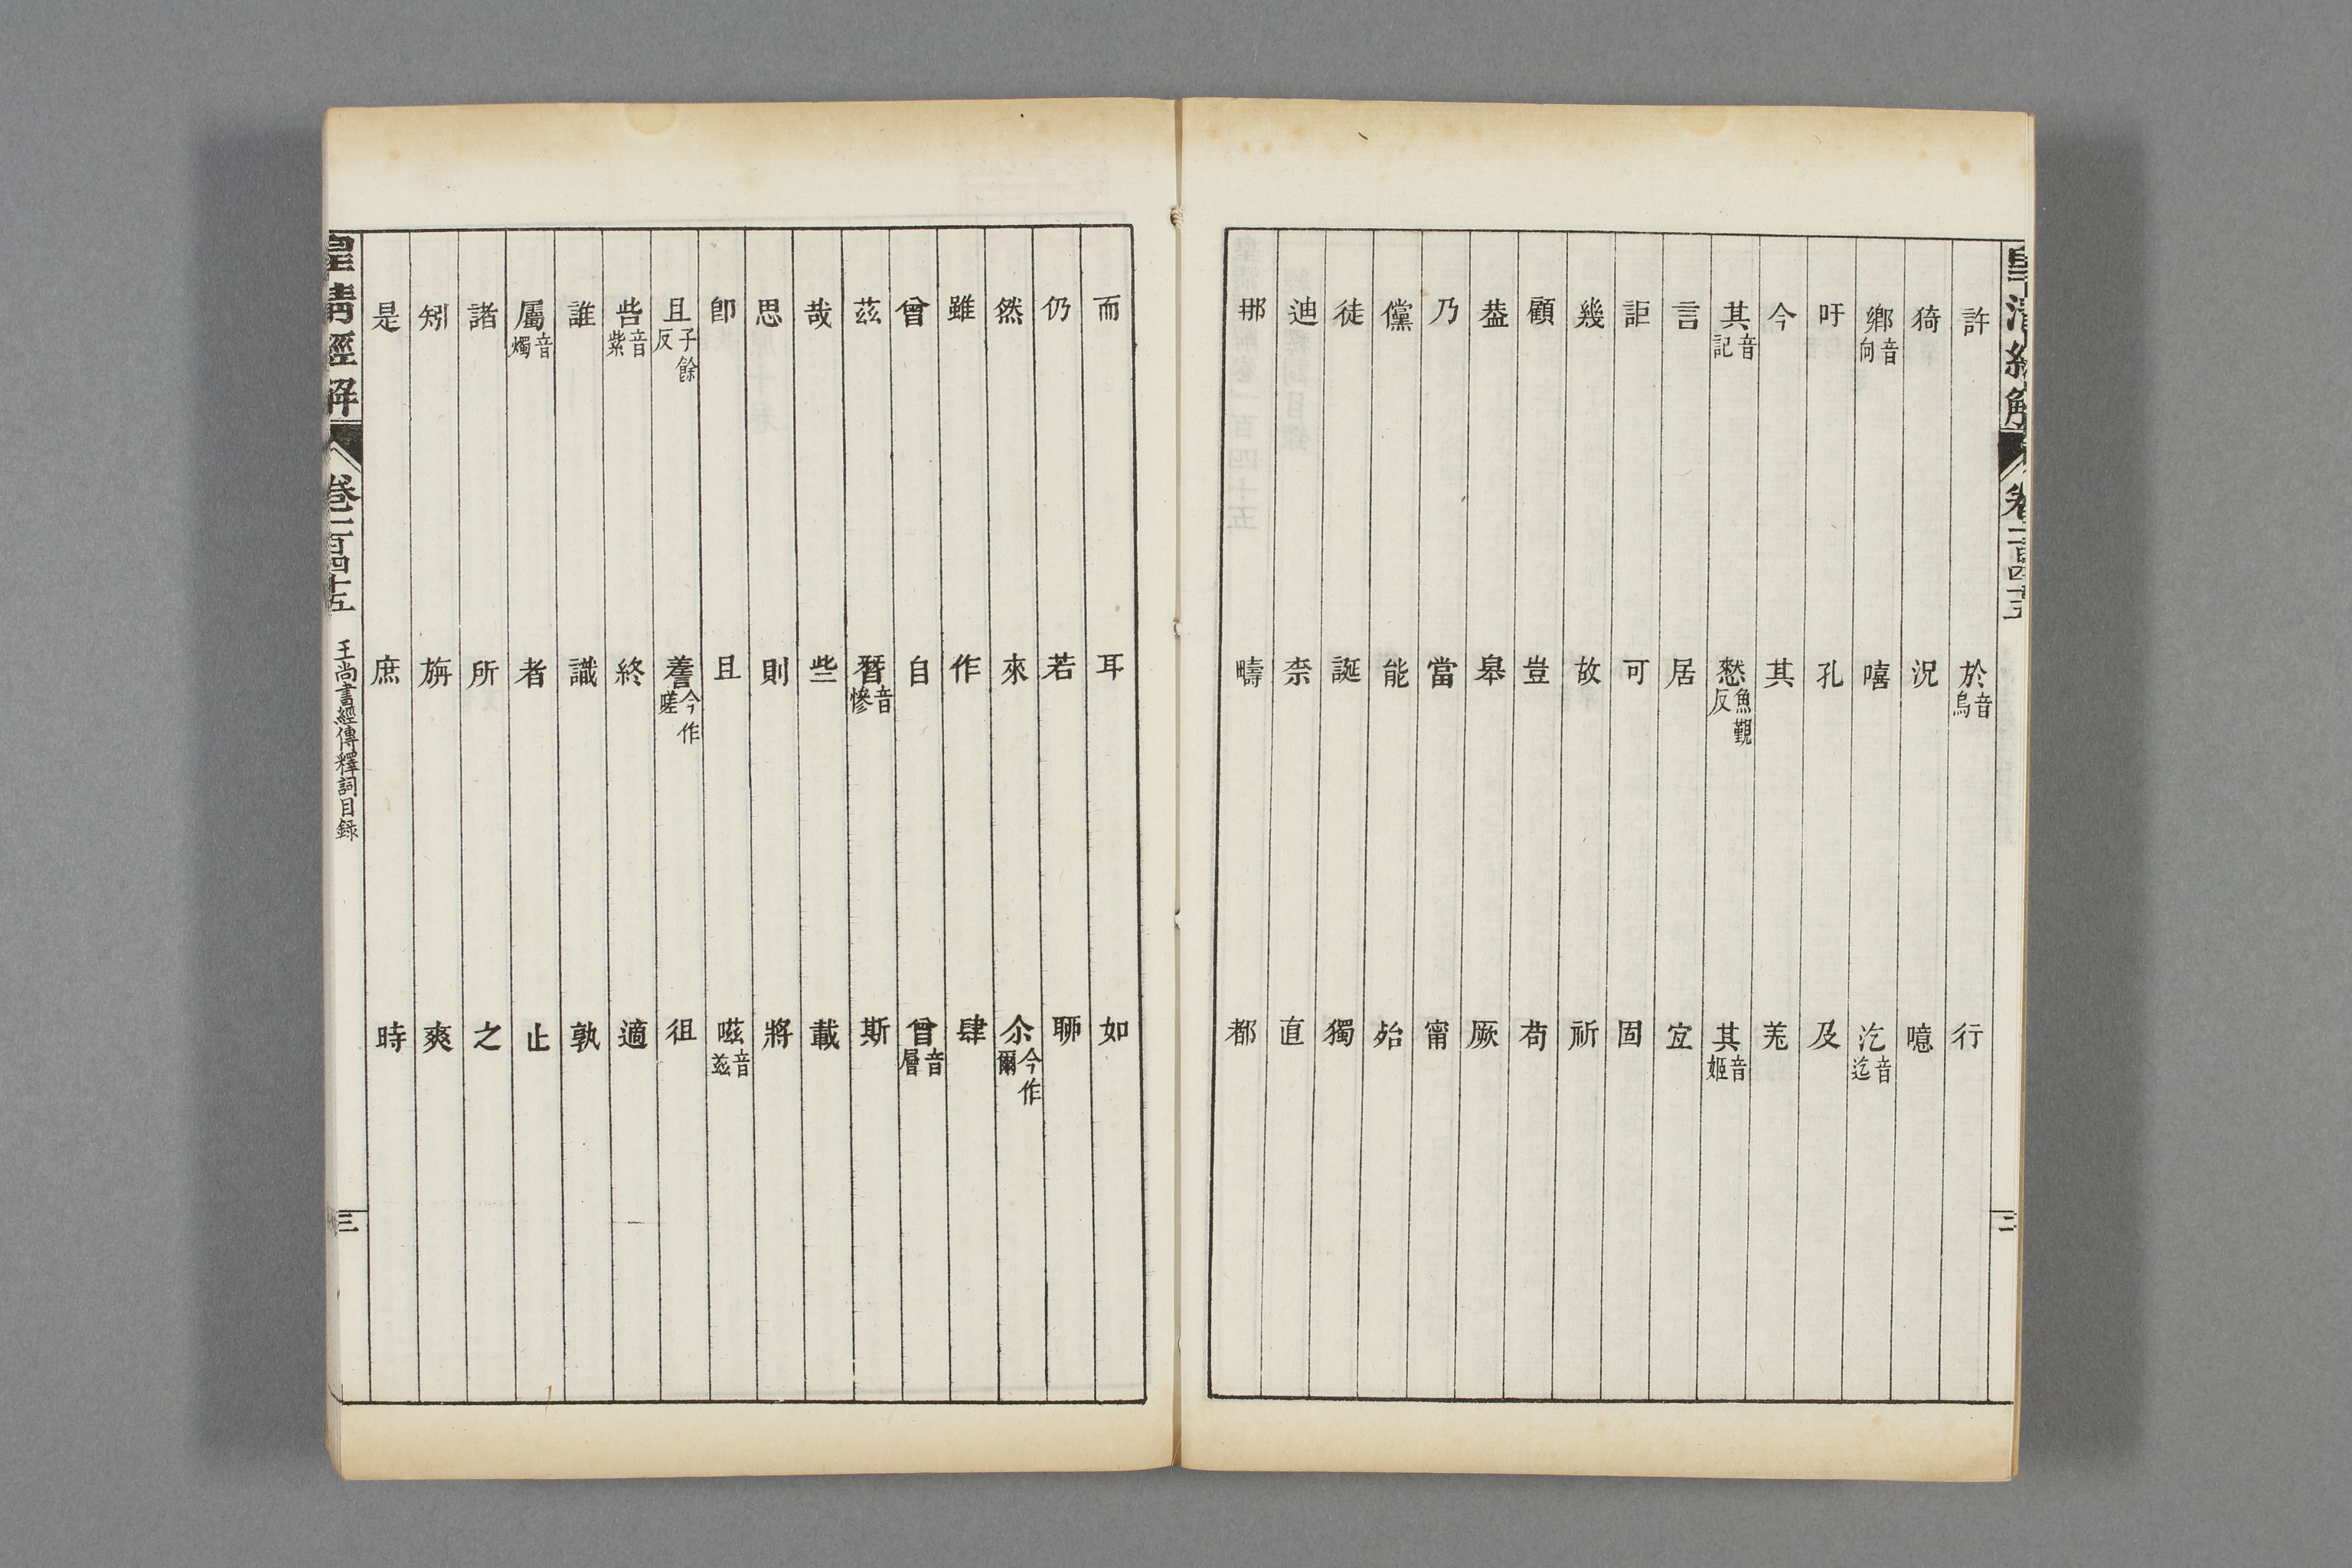 許 於音烏 行
猗 況 噫
鄉音向 嘻 汔音迄
吁 孔 及
今 其 羌
其音記 憖魚覲反 其音姬
言 居 宜
詎 可 固
幾 故 祈
顧 豈 苟
盍 皋 厥
乃 當 甯
儻 能
徒 誕 獨
迪 柰 直
那 疇 都
而 耳 如
仍 若 聊
然 來 尒今作爾
雖 作 肆
曾 自 曾音層
茲 朁音慘 斯
哉 些 載
思 則 將
即 且 嗞音兹
且子餘反 𧨏今作嗟 徂
呰音紫 終 適
誰 識 孰
屬音燭 者 止
諸 所 之
矧 旃 爽
是 庶 時
皇清經解 卷一千二百四十五 王尚書經傳釋詞目錄 三